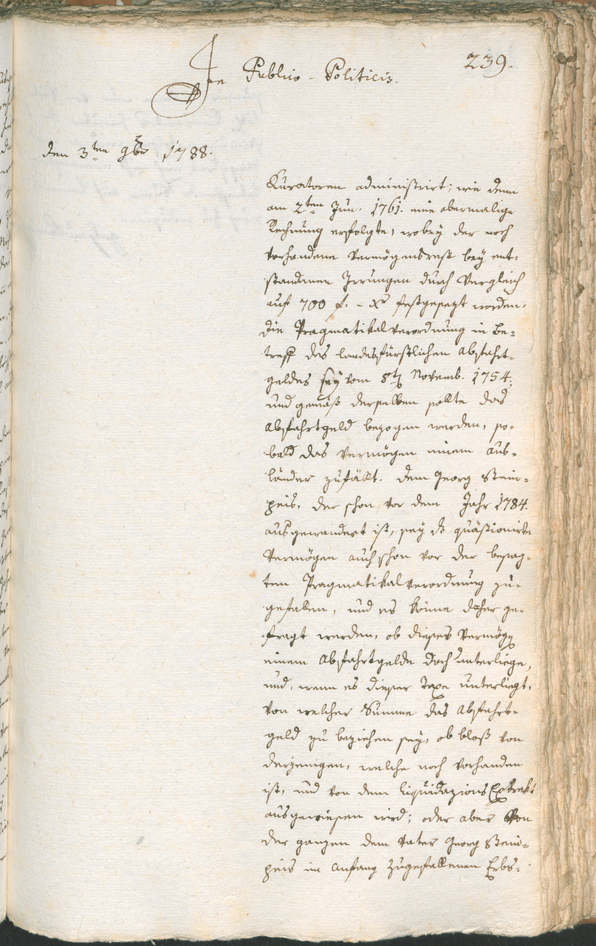 239.
In Publico-Politicis.
den 3ten 9bre 1788.
Kuratoren administrirt; wie denn
am 2ten Jun. 1761. eine abermalige
Rechnung erfolgte, wobey der noch
vorhandene Vermögensrest bey ent-
standenen Irrungen durch Vergleich
auf 700 f. - xr festgesezt worden.
Die Pragmatikalverordnung in Be-
treff des landesfürstlichen Abfahrt-
geldes sey vom 8ten Novemb. 1754.
und gemäß derselben sollte das
Abfahrtgeld bezogen werden, so-
bald das Vermögen einem Aus-
länder zufällt. Dem Georg Stein-
peis, der schon vor dem Jahr 1784.
ausgewandert ist, sey das quästionirte
Vermögen auch schon vor der besag-
ten Pragmatikalverordnung zu-
gefallen, und es könne daher ge-
fragt werden, ob dieses Vermögen
einem Abfahrtgelde doch unterliege,
und, wenn es dieser Taxe unterliegt,
von welcher Summe das Abfahrt-
geld zu beziehen sey, ob bloß von
derjenigen, welche noch vorhanden
ist, und von dem Liquidazions Extrakt
ausgewiesen wird; oder aber von
der ganzen dem Vater Georg Stein-
peis im Anfang zugefallenen Erbs-